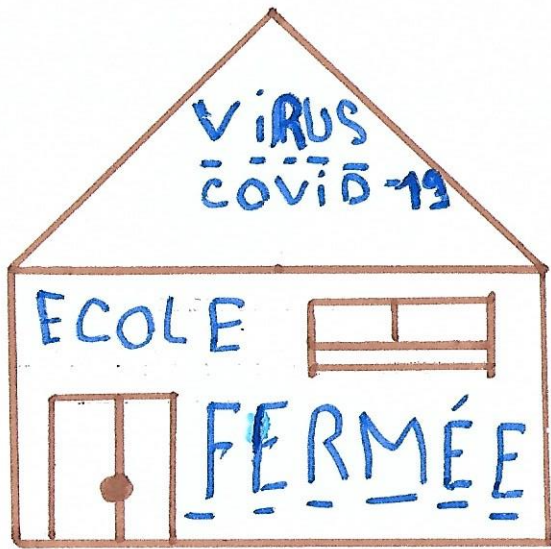 ViRUS
COViD-19
ECOLE
FERMÉE